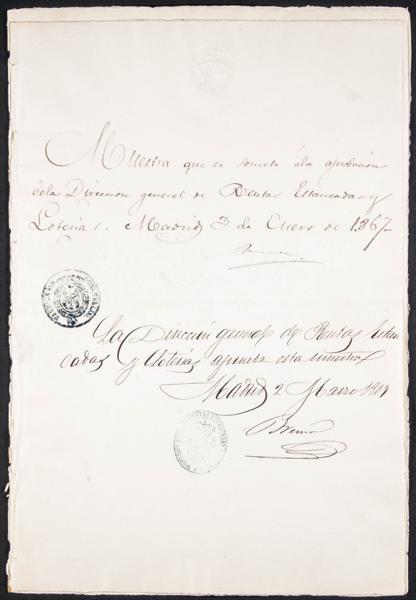 Muestra que se somete á la aprobacion
de la Direccion general de Rentas Estancadas y
Loterias. Madrid 3 de Enero de 1867
La Direccion general de Rentas Estan
cadas y Loterias aprueba esta muestra
Madrid 2 Marzo